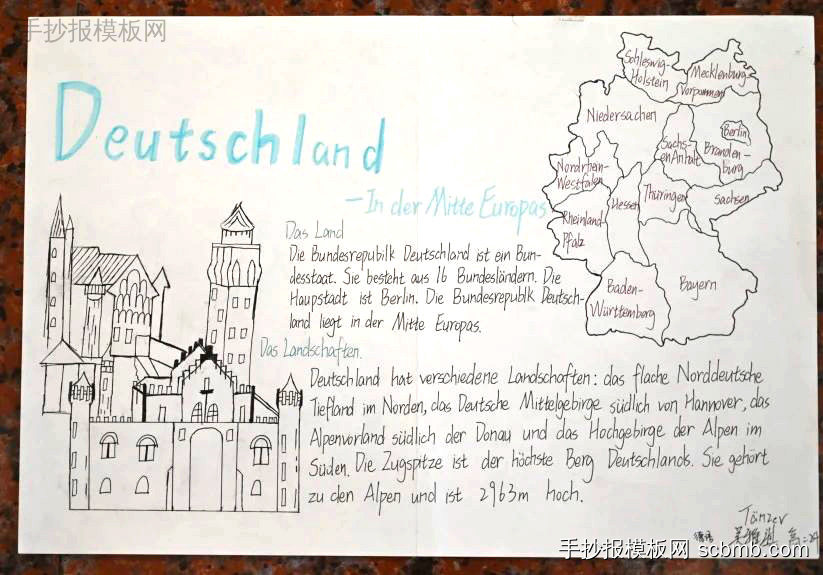 手抄报模板网
Deutschland
－In der Mitte Europas
Das Land
Die Bundesrepubilk Deutschland ist ein Bun-
desstaat. Sie besteht aus 16 Bundesländern. Die
Haupstadt ist Berlin. Die Bundesrepublk Deutsch-
land liegt in der Mitte Europas.
Das Landschaften.
Deutschland hat verschiedene Landschaften: das flache Norddeutsche
Tiefland im Norden, das Deutsche Mittelgebirge südlich von Hannover, das
Alpenvorland südlich der Donau und das Hochgebirge der Alpen im
Süden. Die Zugspitze ist der höchste Berg Deutschlands. Sie gehört
zu den Alpen und ist 2963m hoch.
Schleswig-
Holstein
Mecklenburg-
Vorpommern
Niedersachen
Berlin
Branden-
burg
Sachs-
enAnhalt
Nordrhein-
Westfalen
Hessen
Thüringen
Sachsen
Rheinland
Pfalz
Baden-
Württemberg
Bayern
Tänzer
高二
手抄报模板网 scbmb.com